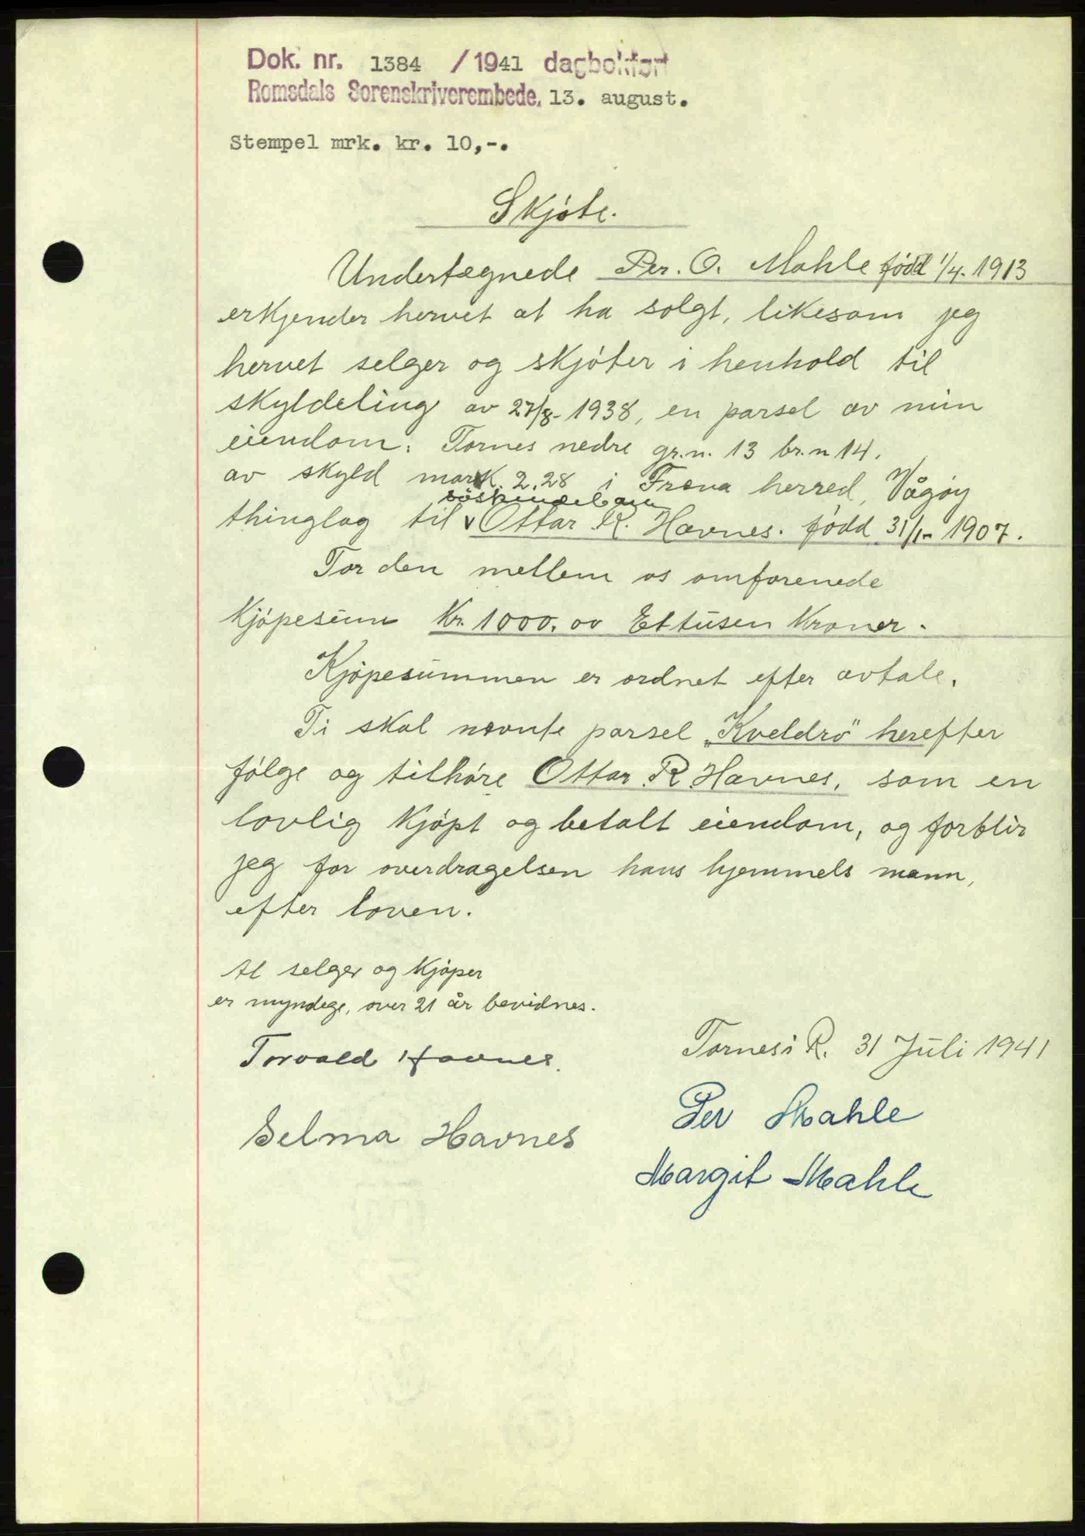 Dok. nr. 1384 / 1941 dagbokført
Romsdals Sorenskriverembede, 13. august.
Stempel mrk. kr. 10,-.
Skjøte.
Undertegnede Per. O. Mahle född 1/4. 1913
erkjender hervet at ha solgt, likesom jeg
hervet selger og skjøter i henhold til
skyldeling av 27/8- 1938, en parsel av min
eiendom: Tornes nedre gr.n. 13 br.n 14.
av skyld mark. 2.28 i Fræna herred, Vågøy
söskendebarn
thinglag til v Ottar R. Havnes. född 31/1- 1907.
For den mellem os omforenede
Kjøpesum Kr. 1000. oo Ettusen Kroner.
Kjøpesummen er ordnet efter avtale.
Ti skal nevnte parsel „Kveldro" herefter
følge og tilhøre Ottar. R. Havnes, som en
lovlig kjøpt og betalt eiendom, og forblir
jeg for overdragelsen hans hjemmels mann,
efter loven.
At selger og Kjøper
er myndege, over 21 år bevidnes.
Torvald Havnes.
Selma Havnes
Tornes i R. 31 Juli 1941
Per Mahle
Margit Mahle